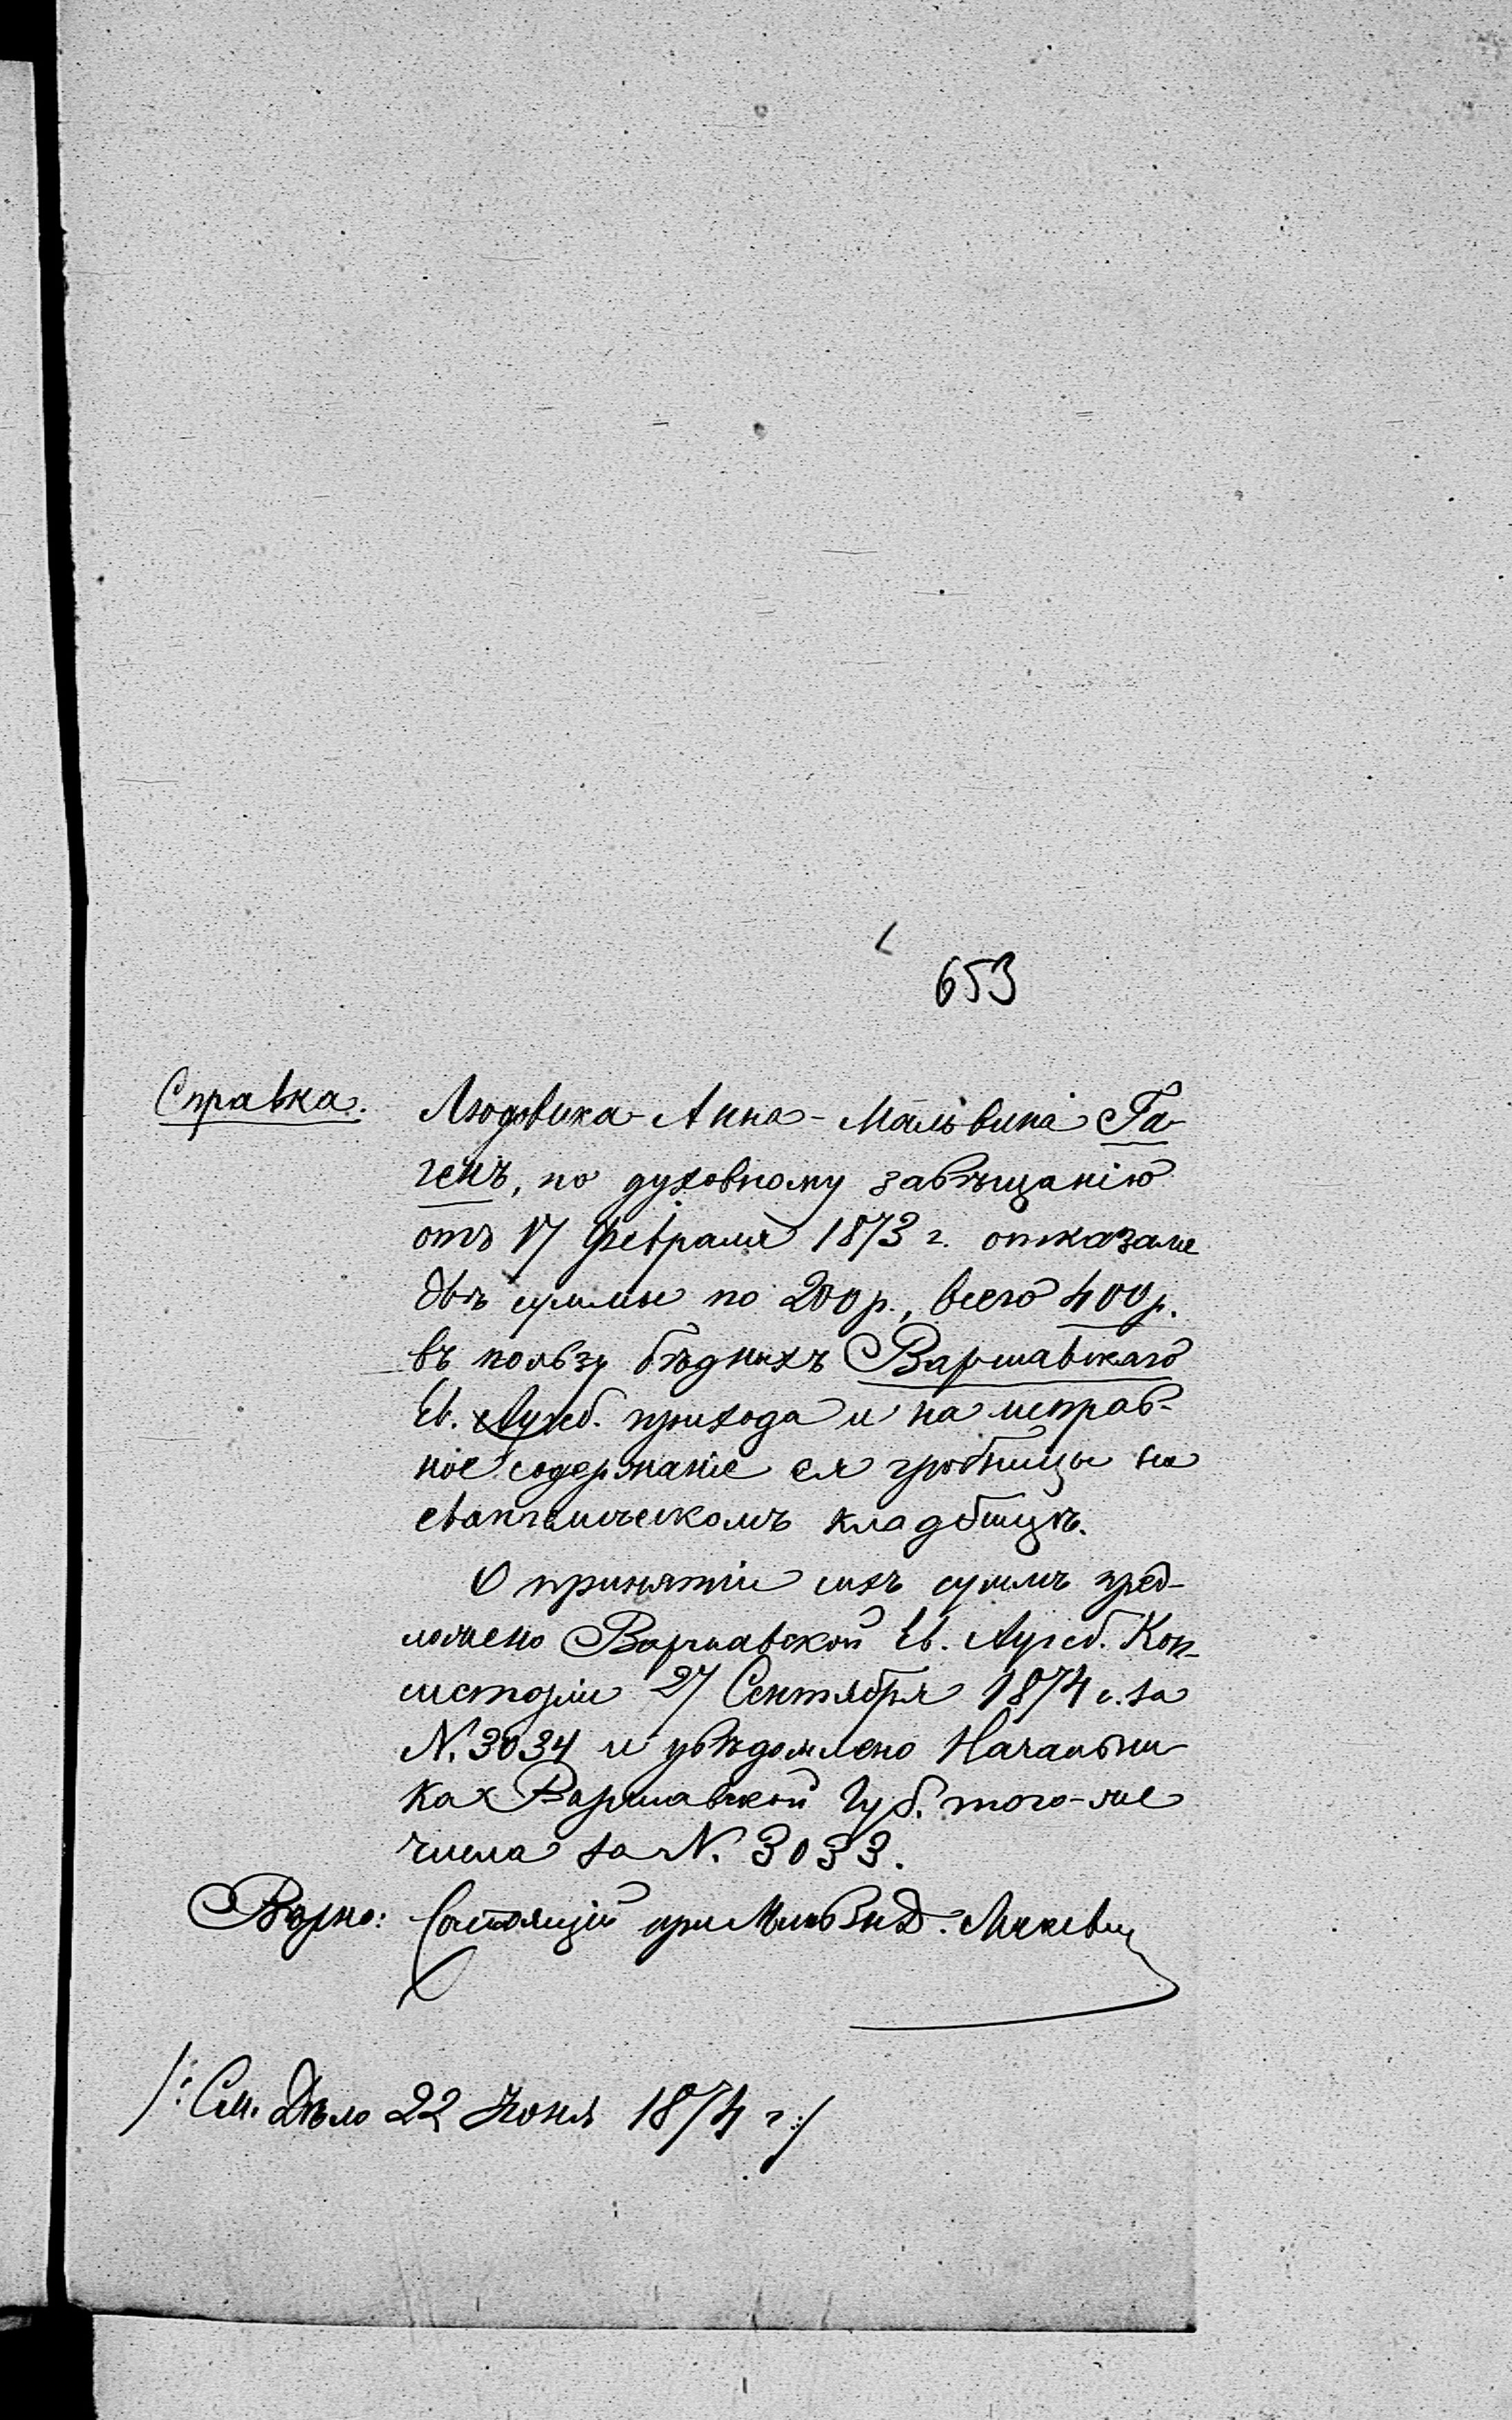 653
Справка. Людовика-Анна-Мальвина Га-
генъ, по духовному завѣщанію
отъ 17 Февраля 1873 г. отказала
двѣ суммы по 200 р., всего 400 р.
въ пользу бѣдныхъ Варшавскаго
Ев. Аугсб. прихода и на исправ-
ное содержаніе ея гробницы на
евангелическомъ кладбищѣ.
О принятіи сихъ суммъ пред-
ложено Варшавской Ев. Аугсб. Кон-
систоріи 27 Сентября 1874 г. за
N. 3034 и увѣдомлено Начальни-
ка Варшавской Губ. того-же
числа за N. 3033.
Вѣрно: Состоящій при Мин Вн Д.
/: См. Дѣло 22 Іюня 1874 г :/